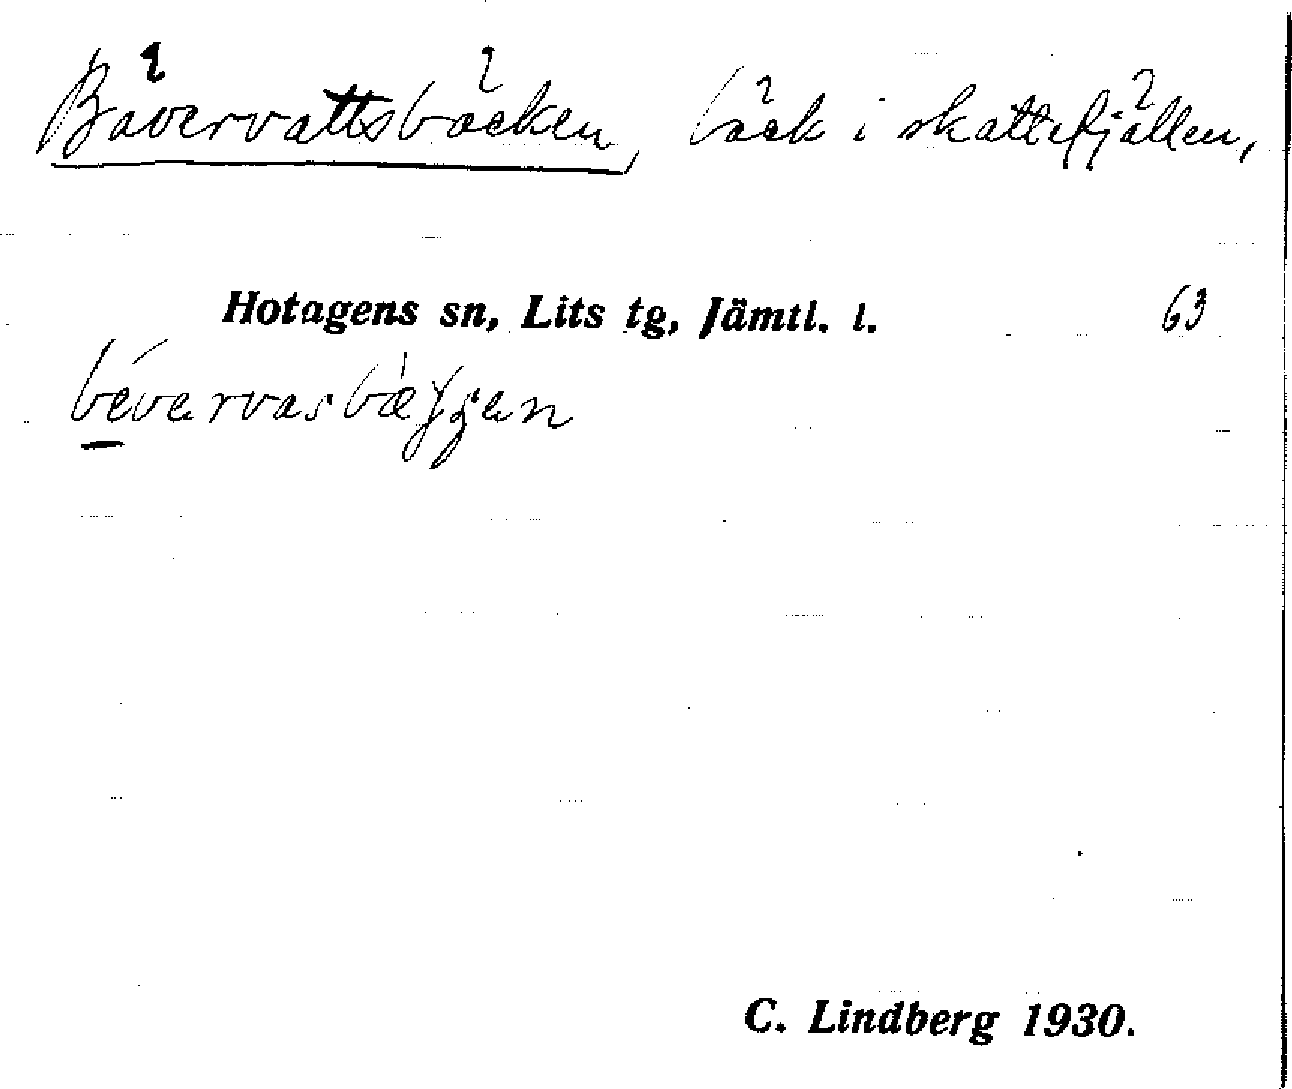 Bävervattsbäcken, bäck i skattefjällen,
Hotagens sn, Lits tg, Jämtl. l. 63
C. Lindberg 1930.